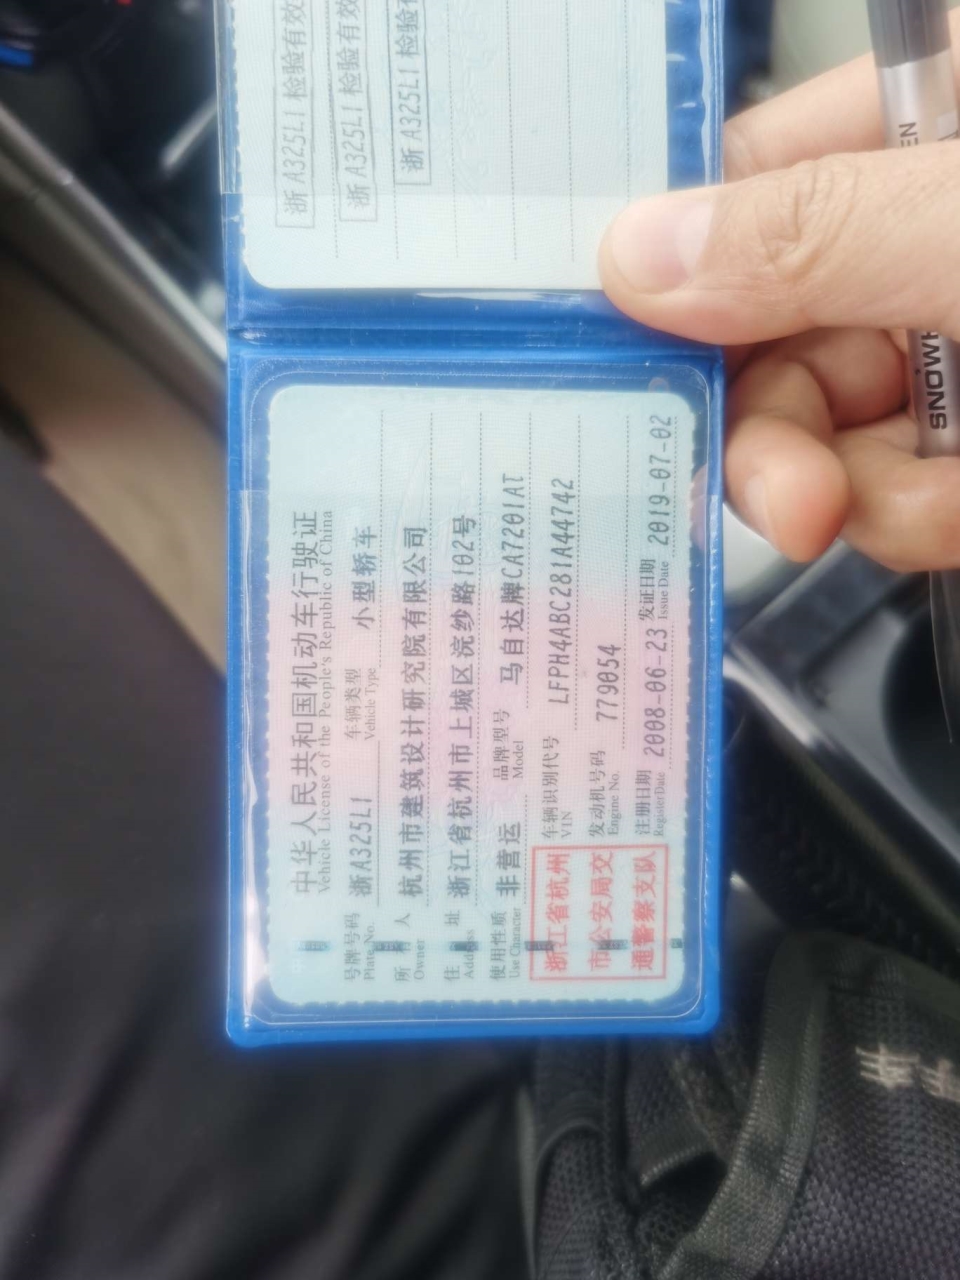 中华人民共和国机动车行驶证
Vehicle License of the People's Republic of China
号牌号码 浙A325L1 车辆类型 小型轿车
Plate No. Vehicle Type
所 人 杭州市建筑设计研究院有限公司
Owner
住 址 浙江省杭州市上城区浣纱路102号
Address
使用性质 非营运 品牌型号 马自达牌CA7201AT
Use Character Model
车辆识别代号 LFPH4ABC281A44742
VIN
发动机号码 779054
Engine No.
注册日期 2008-06-23 发证日期 2019-07-02
Register Date Issue Date
浙江省杭州
市公安局交
通警察支队
浙A325L1 检验有效
浙A325L1 检验有效
浙A325L1 检验
SNOW
EN